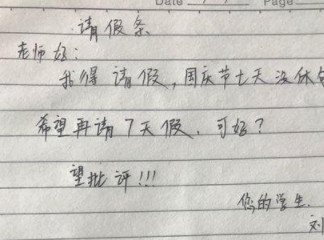 Date
Page
请假条
老师好:
我得请假,国庆节七天没休息
希望再请7天假,可好?
望批评!!!
您的学生.
刘